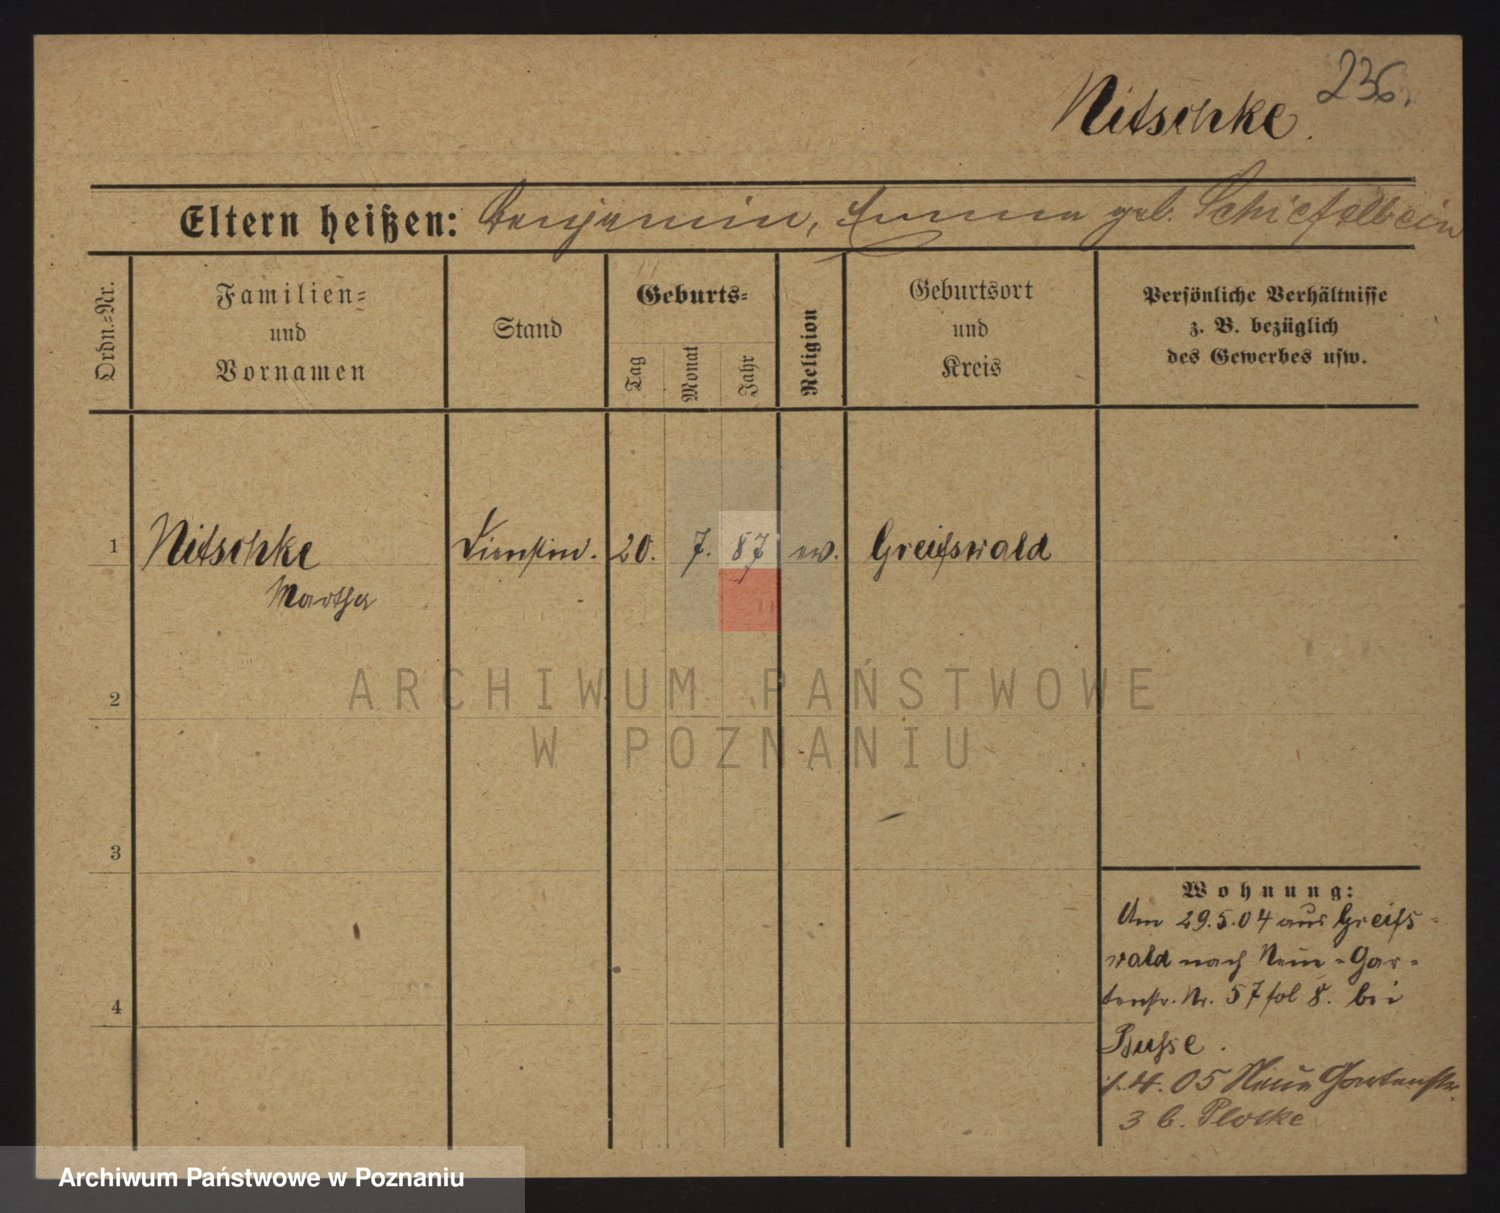 236.
Nitschke.
Eltern heißen: Benjamin, Emma geb. Schiefelbein
Ordn.=Nr.
Familien=
und
Vornamen
Stand
Geburts=
Tag
Monat
Jahr
Religion
Geburtsort
und
Kreis
Persönliche Verhältnisse
z. B. bezüglich
des Gewerbes usw.
1 Nitschke Dienstm. 20. 7. 87 ev. Greifswald
Martha
2
ARCHIWUM PAŃSTWOWE
W POZNANIU
3
4
Wohnung:
Am 29.5.04 aus Greifs-
wald nach Neue-Gar-
tenstr. Nr. 57 fol 8. bei
Busse.
1.4.05 Neue Gartenstr.
3 b. Plotke
Archiwum Państwowe w Poznaniu